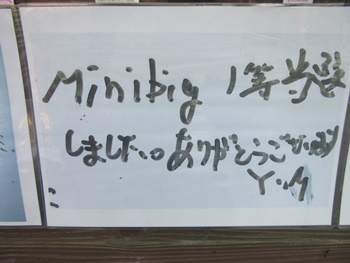 Minibig 1等当選
しました。ありがとうございます
Y.M